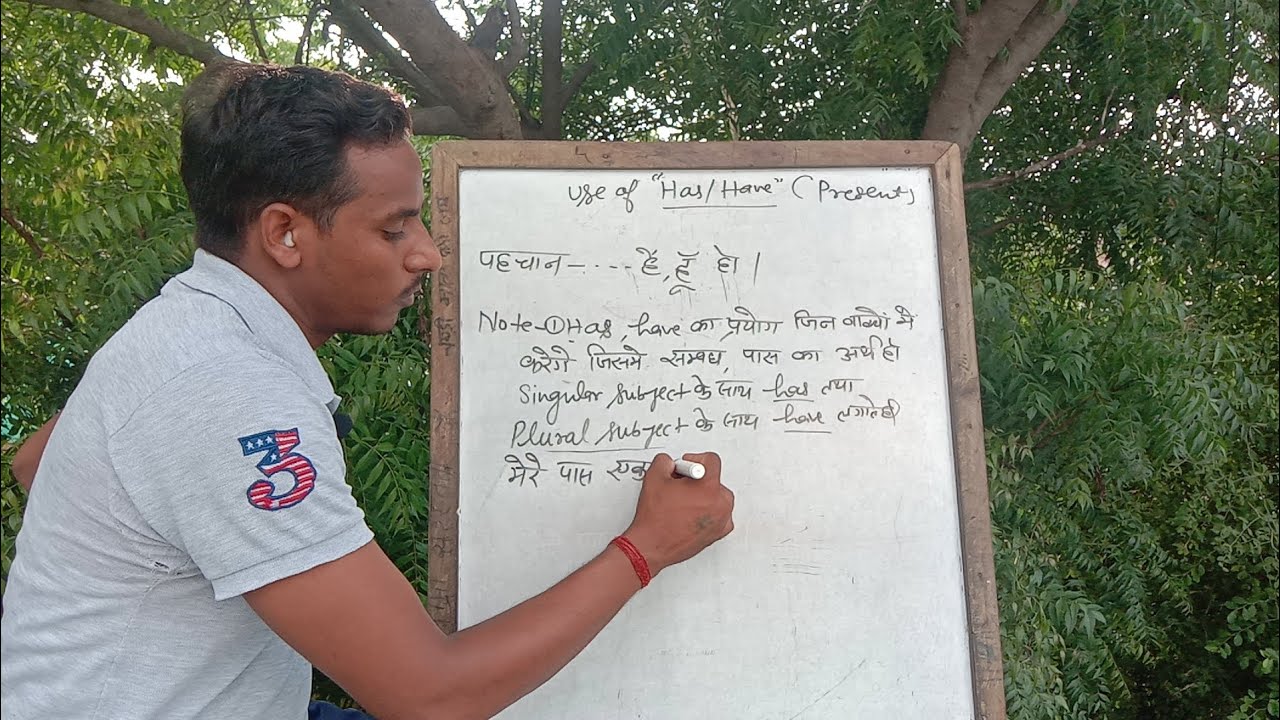 Use of "Has/Have" (Present)
पहचान - .... हैं, हूँ हो |
Note-① Has, have का प्रयोग जिन वाक्यों मे
करेगे जिसमे सम्बध, पास का अर्थ हो
Singular subject के साथ has तथा
Plural subject के साथ have लगाते है
मेरे पास एक
3